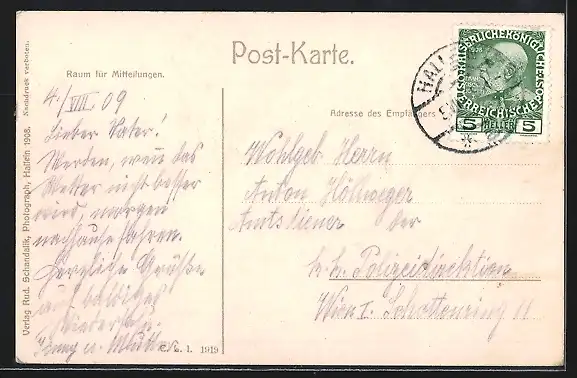 Post-Karte.
Raum für Mitteilungen.
Adresse des Empfängers
4./VIII. 09
Lieber Vater!
Werden, wenn das
Wetter nicht besser
wird, morgen
nachhause fahren.
Herzliche Grüße
auf baldiges
Wiederseh.
u. Mutter
Wohlgeb. Herrn
Anton Höllweger
Amtsdiener der
k. k. Polizeidirektion
Wien I. Schottenring 11
Verlag Rud. Schandalik, Photograph, Hallein 1908. Nachdruck verboten.
1. 1919
HALLE
KAISERLICHE KÖNIGLICHE
ÖSTERREICHISCHE
5 HELLER 5